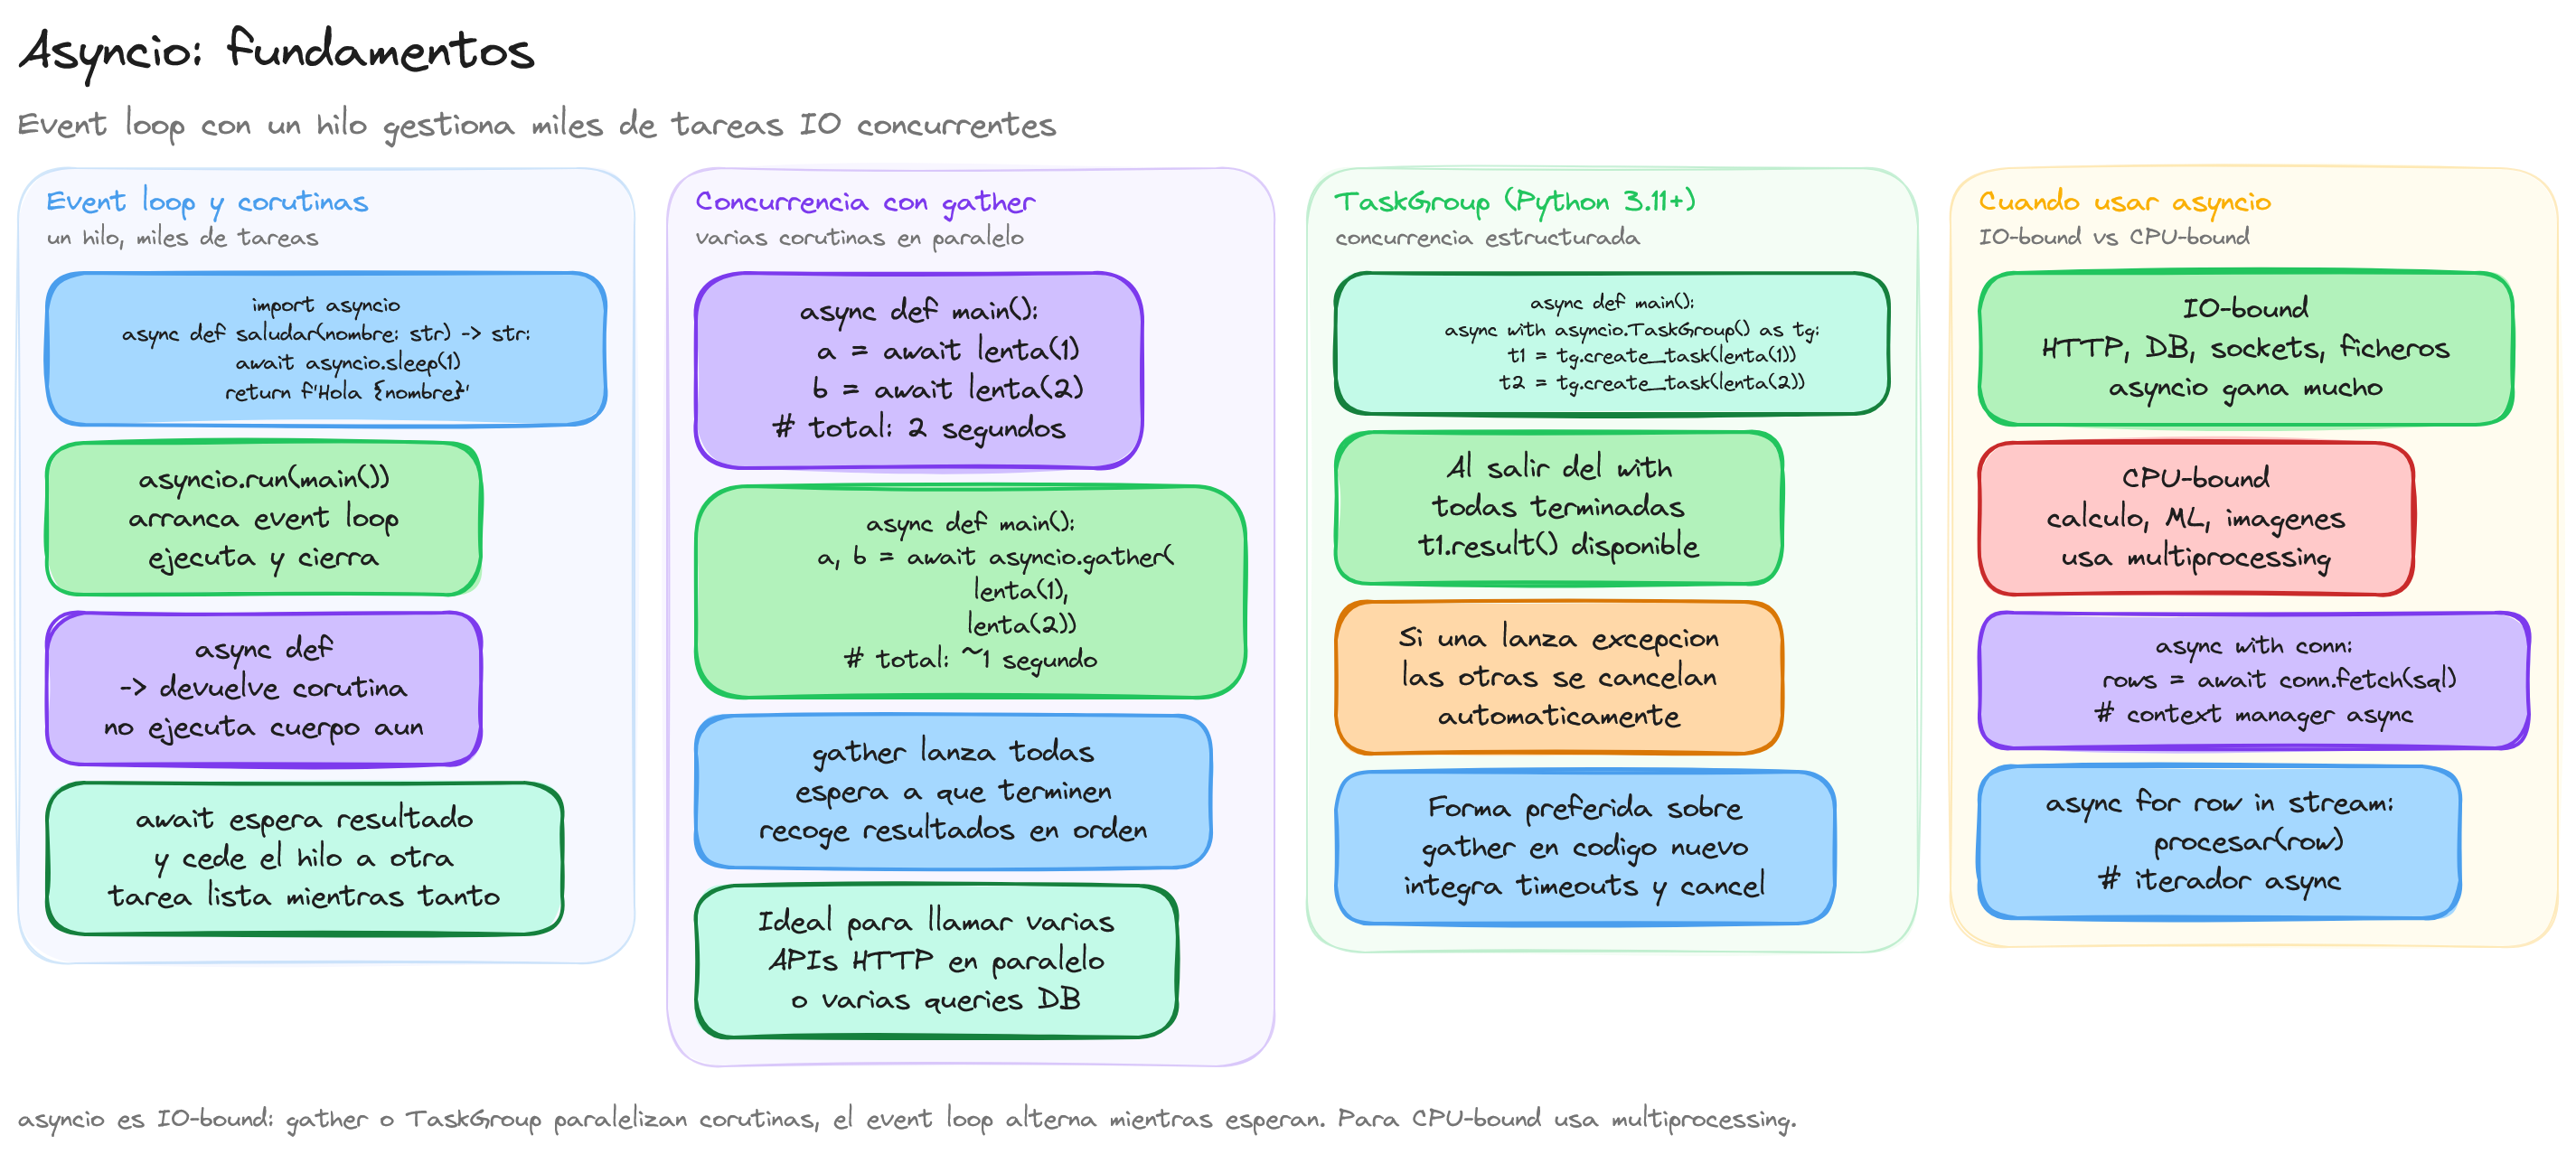 Asyncio: fundamentos
Event loop con un hilo gestiona miles de tareas IO concurrentes
Event loop y corutinas
un hilo, miles de tareas
import asyncio
async def saludar(nombre: str) -> str:
await asyncio.sleep(1)
return f'Hola {nombre}'
asyncio.run(main())
arranca event loop
ejecuta y cierra
async def
-> devuelve corutina
no ejecuta cuerpo aun
await espera resultado
y cede el hilo a otra
tarea lista mientras tanto
Concurrencia con gather
varias corutinas en paralelo
async def main():
a = await lenta(1)
b = await lenta(2)
# total: 2 segundos
async def main():
a, b = await asyncio.gather(
lenta(1),
lenta(2))
# total: ~1 segundo
gather lanza todas
espera a que terminen
recoge resultados en orden
Ideal para llamar varias
APIs HTTP en paralelo
o varias queries DB
TaskGroup (Python 3.11+)
concurrencia estructurada
async def main():
async with asyncio.TaskGroup() as tg:
t1 = tg.create_task(lenta(1))
t2 = tg.create_task(lenta(2))
Al salir del with
todas terminadas
t1.result() disponible
Si una lanza excepcion
las otras se cancelan
automaticamente
Forma preferida sobre
gather en codigo nuevo
integra timeouts y cancel
Cuando usar asyncio
IO-bound vs CPU-bound
IO-bound
HTTP, DB, sockets, ficheros
asyncio gana mucho
CPU-bound
calculo, ML, imagenes
usa multiprocessing
async with conn:
rows = await conn.fetch(sql)
# context manager async
async for row in stream:
procesar(row)
# iterador async
asyncio es IO-bound: gather o TaskGroup paralelizan corutinas, el event loop alterna mientras esperan. Para CPU-bound usa multiprocessing.